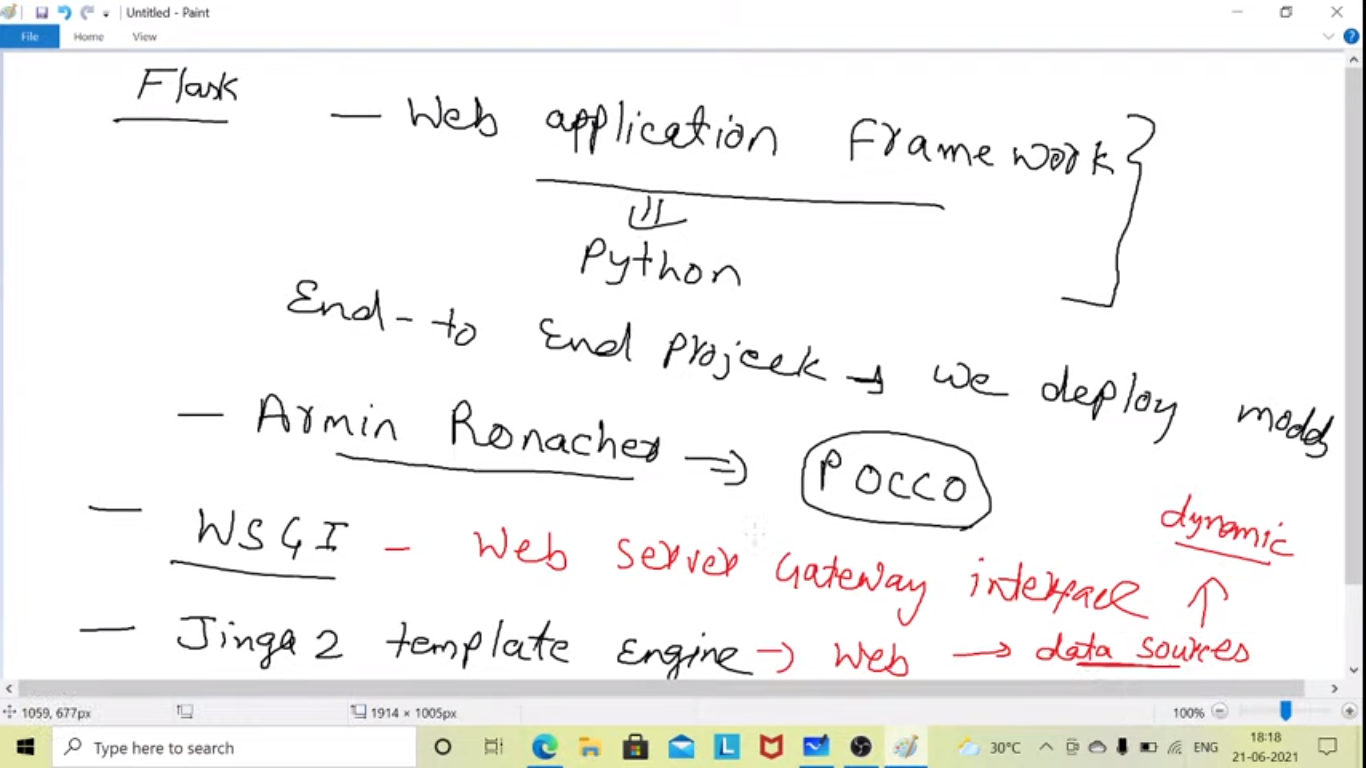 Untitled - Paint
File Home View
Flask — Web application Framework
Python
End-to End Projeck → we deploy
— Armin Ronacher ⇒ POCCO
dynamic
— WSGI - Web Server Gateway interface
— Jinga2 template Engine → Web → data sources
1059, 677px 1914 × 1005px 100%
Type here to search 30°C ENG 18:18
21-06-2021